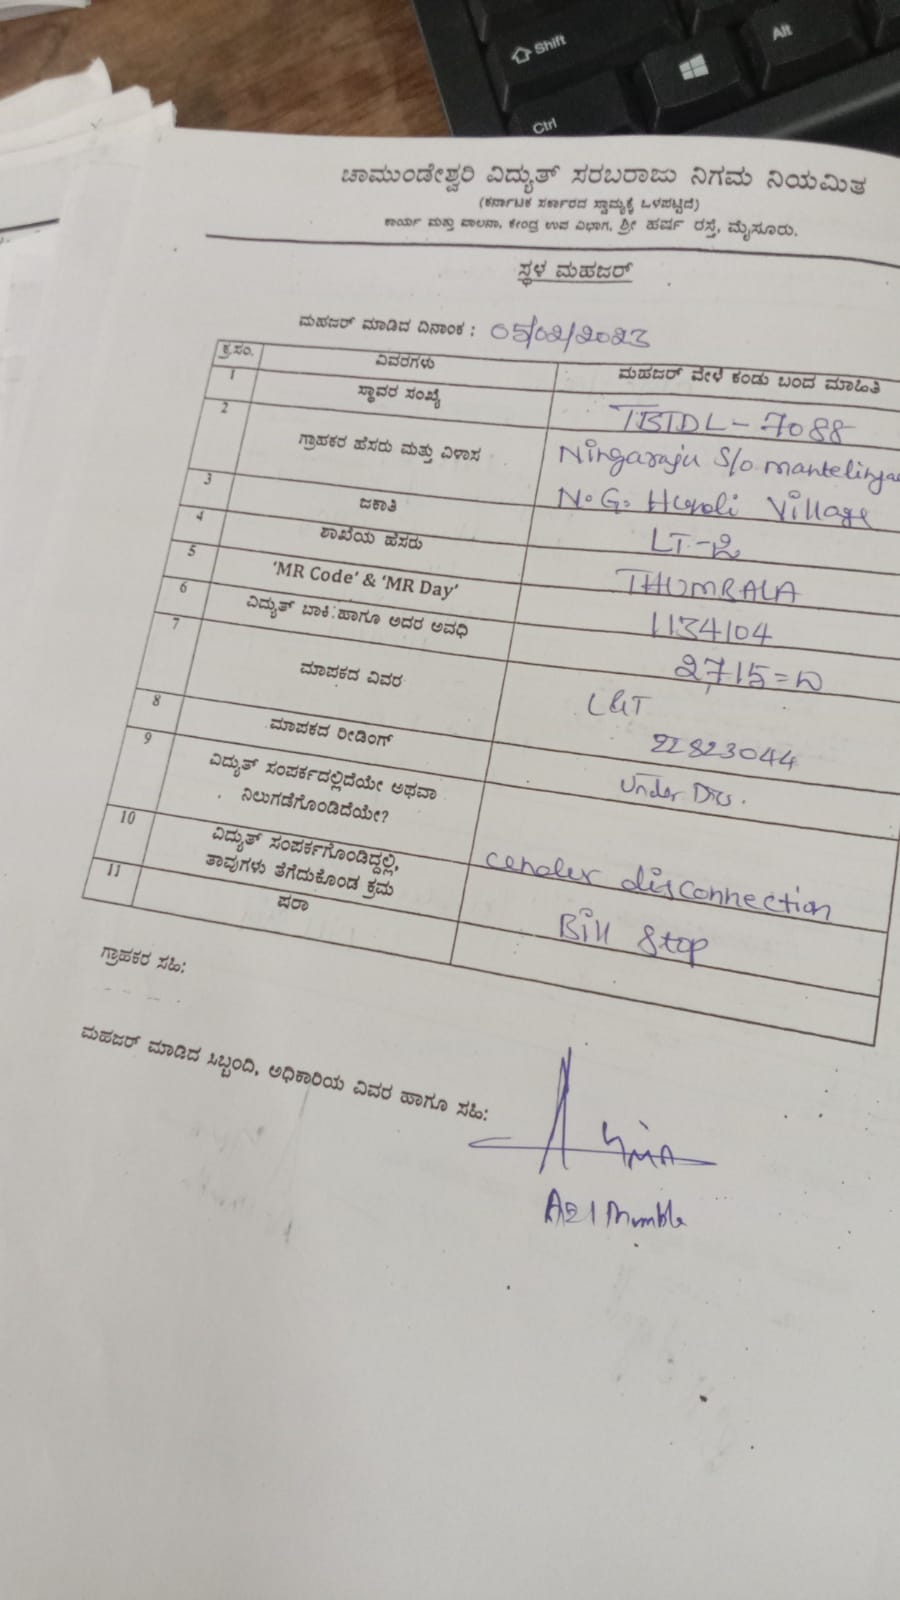 Shift
Alt
Ctrl
ಚಾಮುಂಡೇಶ್ವರಿ ವಿದ್ಯುತ್ ಸರಬರಾಜು ನಿಗಮ ನಿಯಮಿತ
(ಕರ್ನಾಟಕ ಸರ್ಕಾರದ ಸ್ವಾಮ್ಯಕ್ಕೆ ಒಳಪಟ್ಟಿದೆ)
ಕಾರ್ಯ ಮತ್ತು ಪಾಲನಾ, ಕೇಂದ್ರ ಉಪ ವಿಭಾಗ, ಶ್ರೀ ಹರ್ಷ ರಸ್ತೆ, ಮೈಸೂರು.
ಸ್ಥಳ ಮಹಜರ್
ಮಹಜರ್ ಮಾಡಿದ ದಿನಾಂಕ : 05/02/2023
ಕ್ರ.ಸಂ. ವಿವರಗಳು ಮಹಜರ್ ವೇಳೆ ಕಂಡು ಬಂದ ಮಾಹಿತಿ
1 ಸ್ಥಾವರ ಸಂಖ್ಯೆ TBIDL-7088
2 ಗ್ರಾಹಕರ ಹೆಸರು ಮತ್ತು ವಿಳಾಸ Ningaraju S/o
N.G. Hundi Village
3 ಜಕಾತಿ LT-2
4 ಶಾಖೆಯ ಹೆಸರು THUMBALA
5 'MR Code' & 'MR Day' 1134104
6 ವಿದ್ಯುತ್ ಬಾಕಿ ಹಾಗೂ ಅದರ ಅವಧಿ 2715=
7 ಮಾಪಕದ ವಿವರ L&T
22823044
8 ಮಾಪಕದ ರೀಡಿಂಗ್ Under Dis.
9 ವಿದ್ಯುತ್ ಸಂಪರ್ಕದಲ್ಲಿದೆಯೇ ಅಥವಾ
ನಿಲುಗಡೆಗೊಂಡಿದೆಯೇ? under disconnection
10 ವಿದ್ಯುತ್ ಸಂಪರ್ಕಗೊಂಡಿದ್ದಲ್ಲಿ,
ತಾವುಗಳು ತೆಗೆದುಕೊಂಡ ಕ್ರಮ Bill Stop
11 ಷರಾ
ಗ್ರಾಹಕರ ಸಹಿ:
ಮಹಜರ್ ಮಾಡಿದ ಸಿಬ್ಬಂದಿ, ಅಧಿಕಾರಿಯ ವಿವರ ಹಾಗೂ ಸಹಿ: